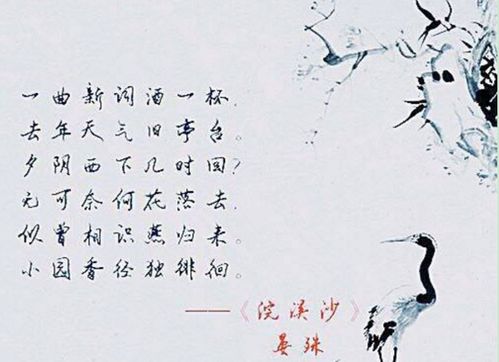 一曲新词酒一杯,
去年天气旧亭台。
夕阴西下几时回?
无可奈何花落去,
似曾相识燕归来。
小园香径独徘徊。
——《浣溪沙》
晏殊